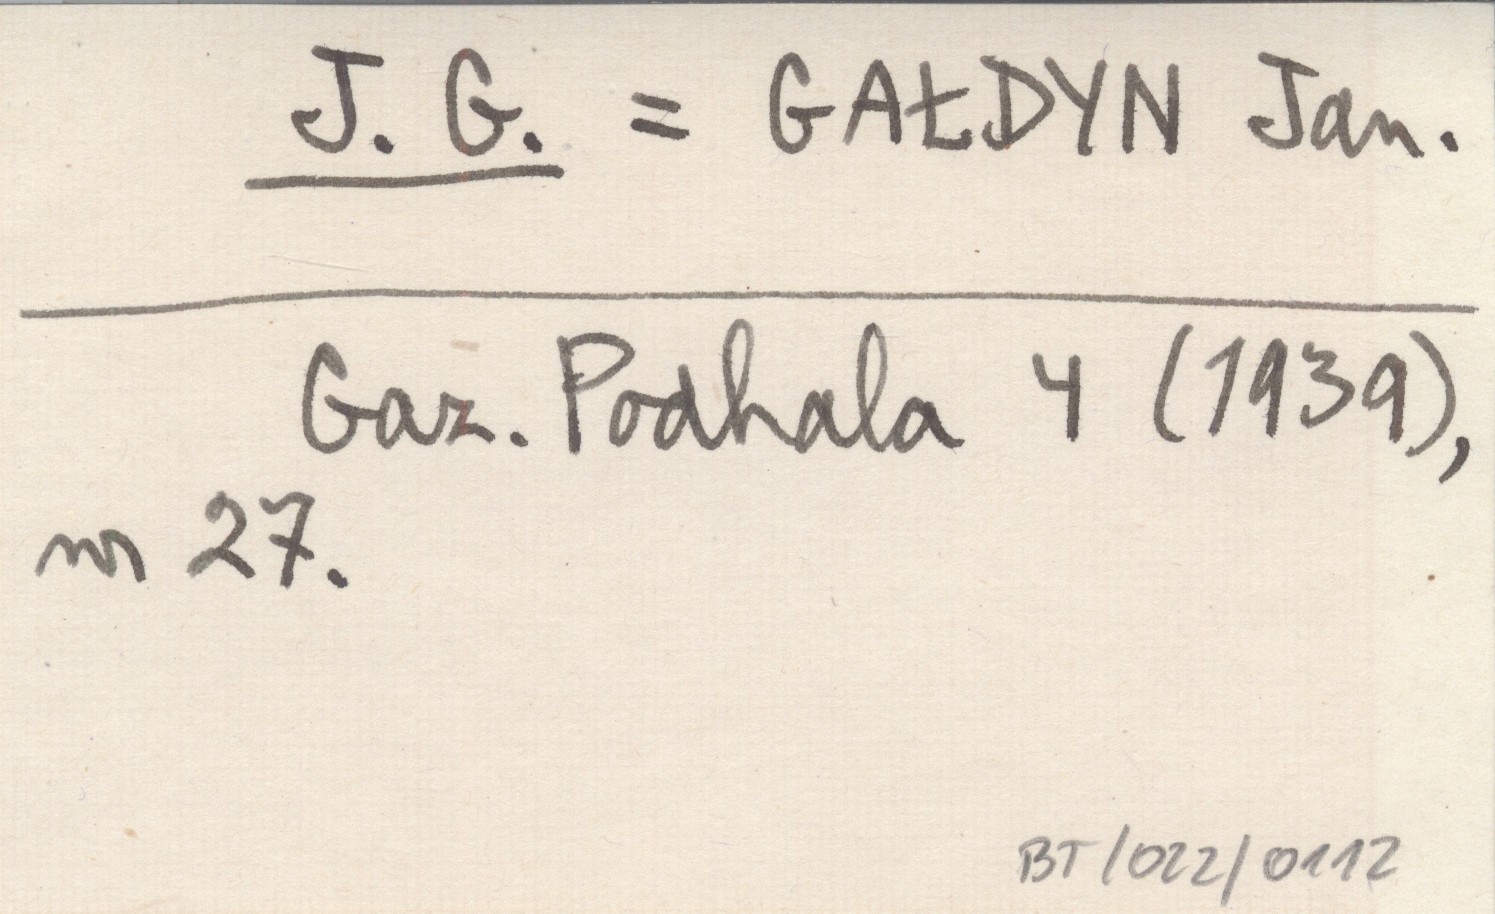 J. G. = GAŁDYN Jan.
Gaz. Podhala 4 (1939),
nr 27.
BT/022/0112